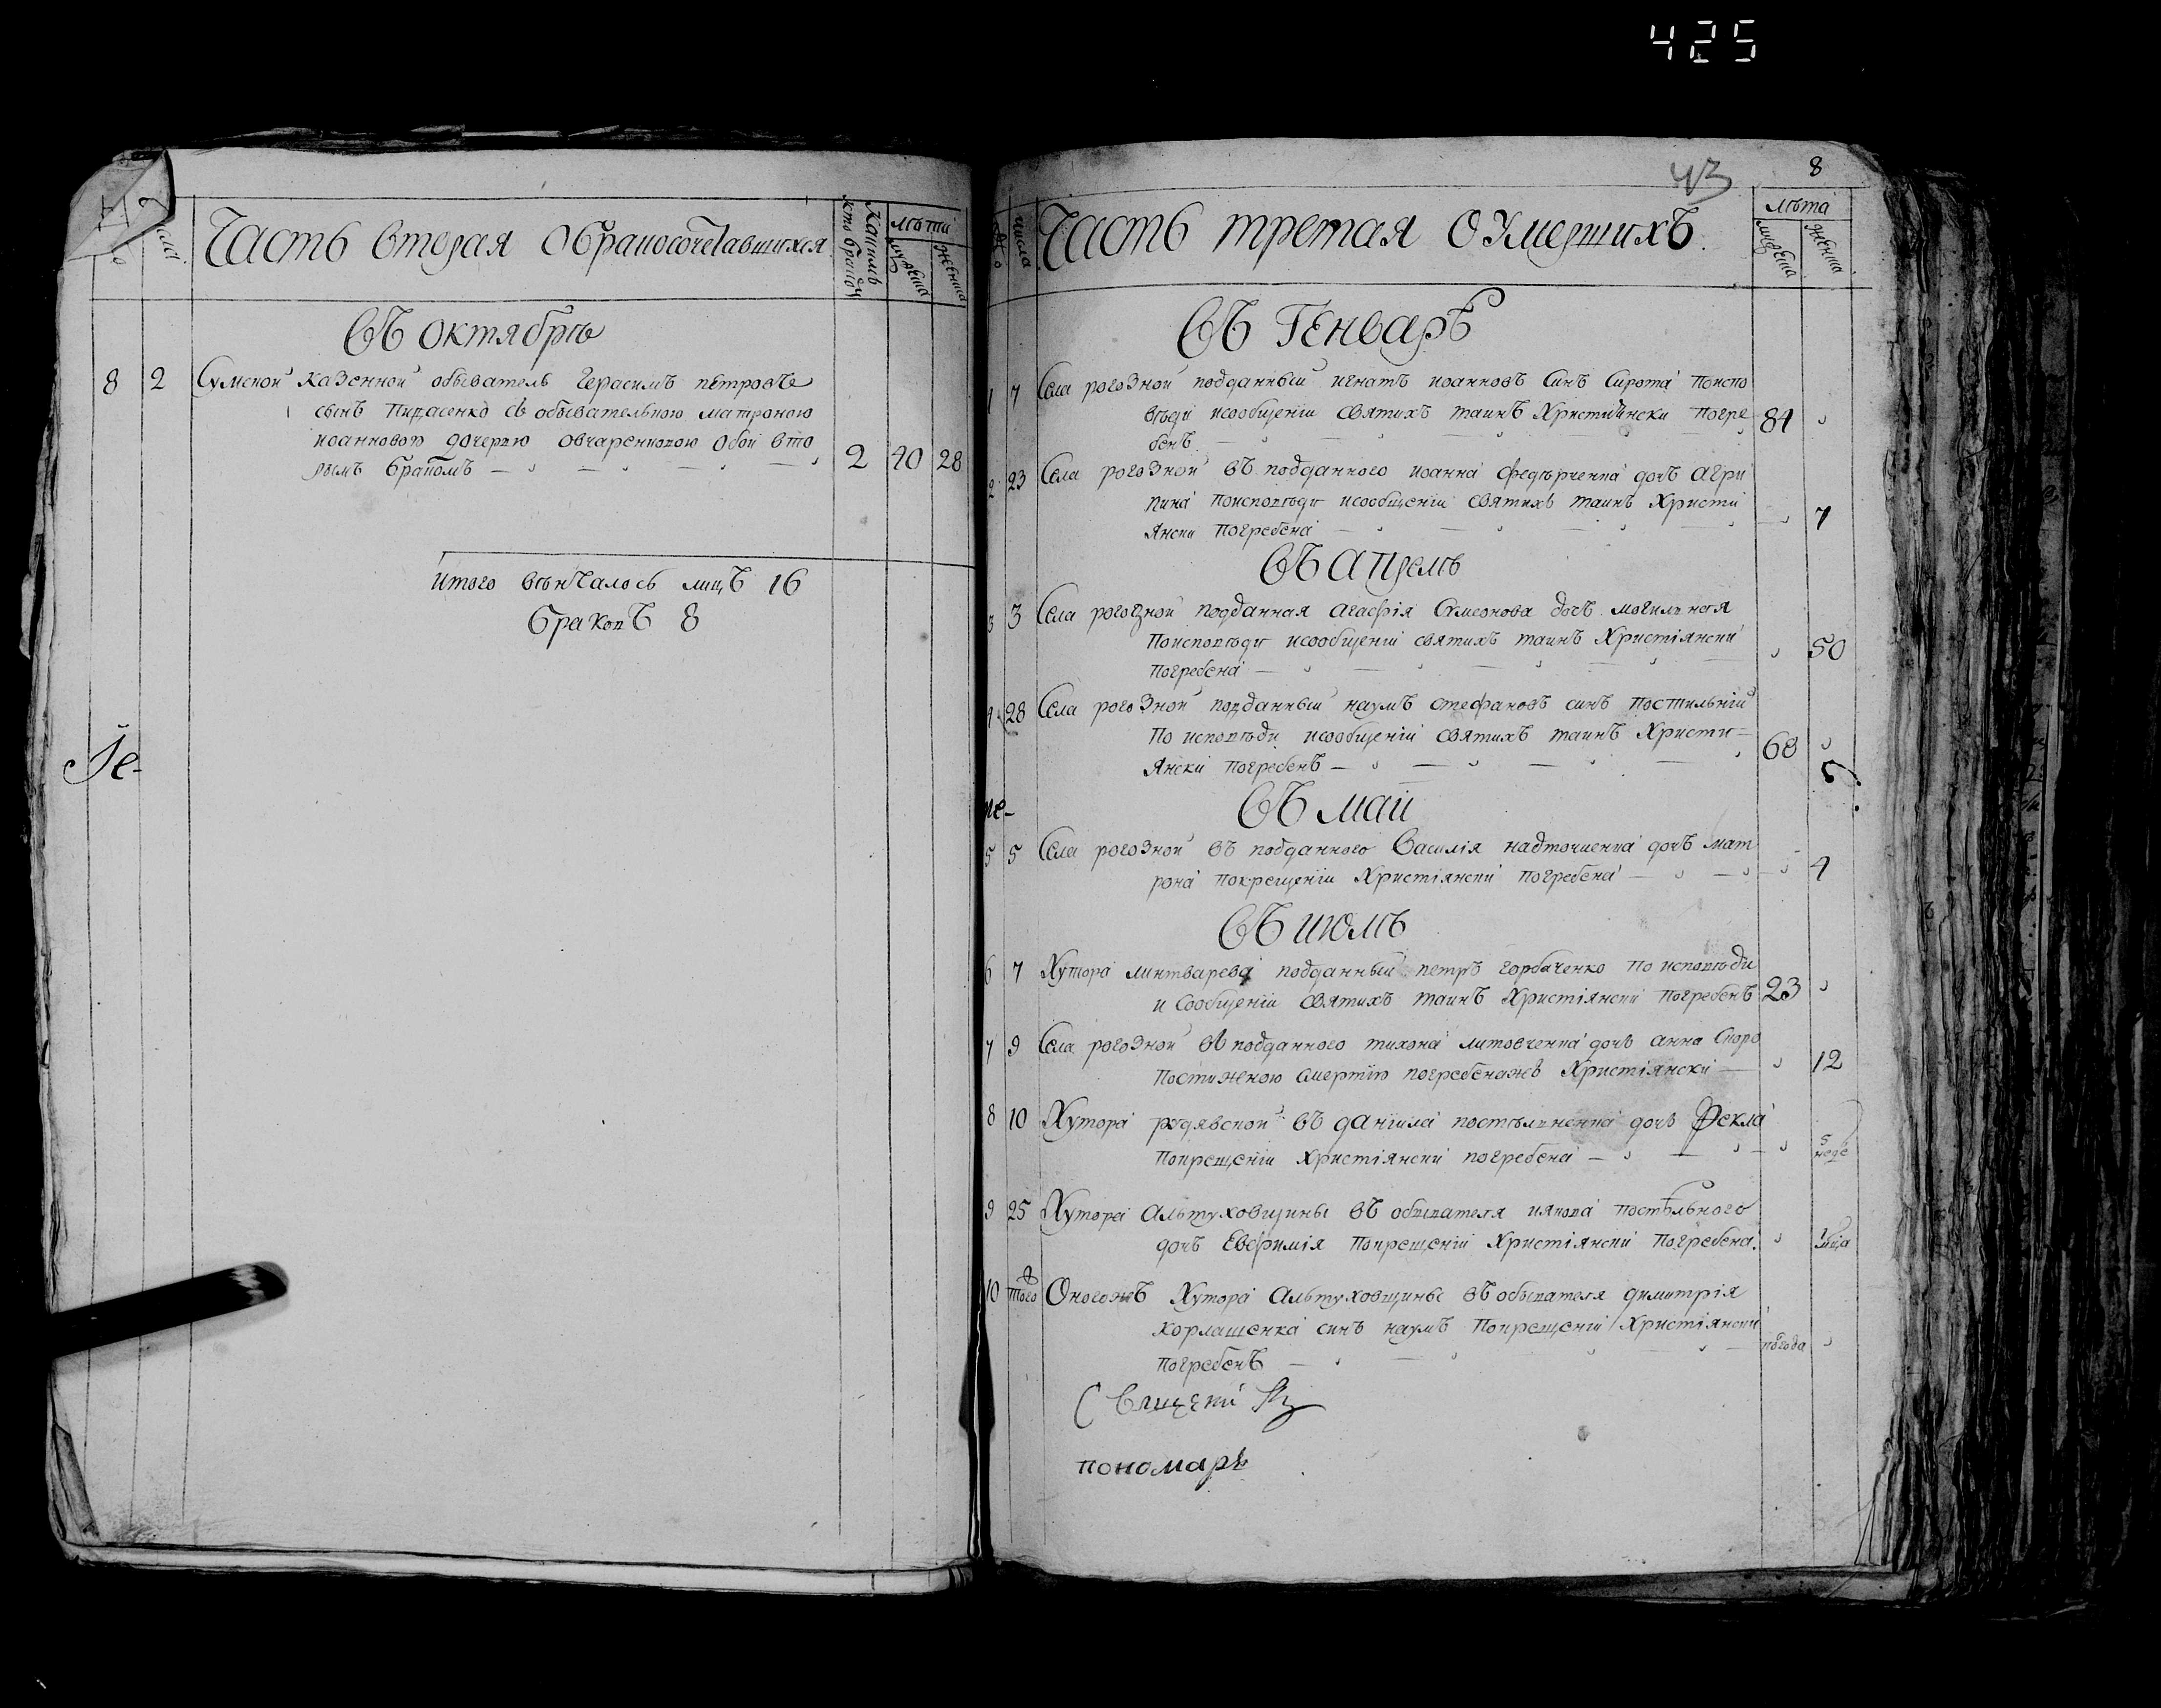 425
Часть вторая О бракосочетавшихся
лѣта
Въ октябрѣ
8 2 Сумской казенной обыватель Герасимъ петровъ
сынъ Пидасенко съ обывательною матроною
иоанновою дочерпю овчаренковою обои вто
рымъ бракомъ 2 40 28
Итого вѣнчалось лицъ 16
браковъ 8
43
8
числа
Часть третая О Умершихъ
лѣта
мужеска
женска
Въ Генварѣ
1 7 Села рогозной подданный игнатъ иоанновъ синъ Сирота поиспо
вѣди исообщеніи святихъ таинъ Християнски погре
бенъ 84
2 23 Села рогозной въ подданного иоанна федърченка дочъ агри
пина поисповѣди исообщеніи святихъ таинъ Христи
янски погребена 7
Въ апрелѣ
3 3 Села рогозной подданная агафія Симеонова дочъ могильная
поисповѣди исообщеніи святихъ таинъ Христіянски
погребена 50
4 28 Села рогозной подданный наумъ стефановъ синъ постильній
По исповѣди исообщеніи святихъ таинъ Христи-
янски погребенъ 68
Въ маи
5 5 Села рогозной въ подданного Василія надточиенка дочъ мат
рона покрещеніи Христіянски погребена 4
Въ июлѣ
6 7 Хутора линтварева подданный петръ горбаченко по исповѣди
и Сообщеніи святихъ таинъ Христіянски погребенъ 23
7 9 Села рогозной въ подданного тихона литовченка дочъ анна скоро
постижною смертію погребенажъ Христіянски 12
8 10 Хутора въ даніила дочъ Фекла
покрещеніи Христіянски погребена 5 неде
9 25 Хутора Альтуховщины въ обывателя иякова постѣльного
дочъ Евфимія покрещеніи Христіянски погребена.
10 того Оногожъ Хутора Альтуховщины въ обывателя димитрія
корлашенка синъ наумъ Покрещеніи Христіянски
погребенъ погода
пономарь